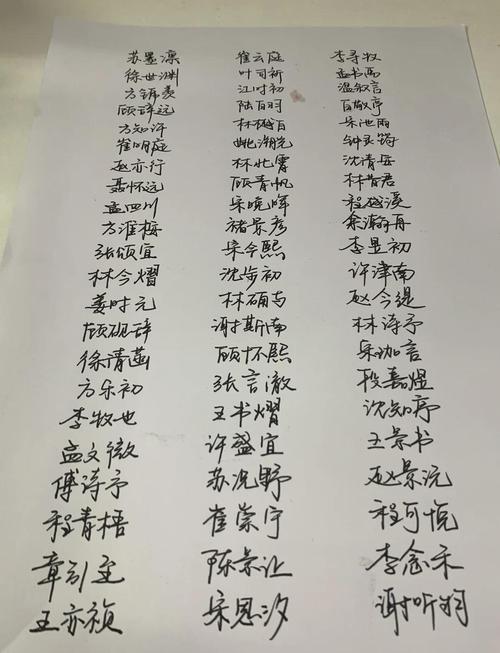 苏墨凛 崔云庭 李寻牧
徐世渊 叶司祈 孟书禹
方锦表 江时初 温叙言
顾辞远 陆百羽 百敬序
方知许 林樾百 宋池雨
崔明庭 姚瀚尧 钟灵筠
赵亦行 林屹霄 沈清岳
聂怀远 顾青帆 林昔君
孟四川 宋晓晖 程越溪
方淮梅 褚景彦 余瀚舟
张颂宜 宋今熙 李昱初
林今熠 沈步初 许津南
姜时元 林硒与 赵今缇
顾砚辞 谢斯南 林涛予
徐清菡 顾怀熙 宋珈言
方乐初 张言澈 段嘉煜
李牧也 王书熠 沈知序
孟文微 许盛宜 王景书
傅诗予 苏况野 赵景沅
程青梧 崔崇宇 程可悦
章引玉 陈景让 李念禾
王亦祯 宋恩汐 谢听钧